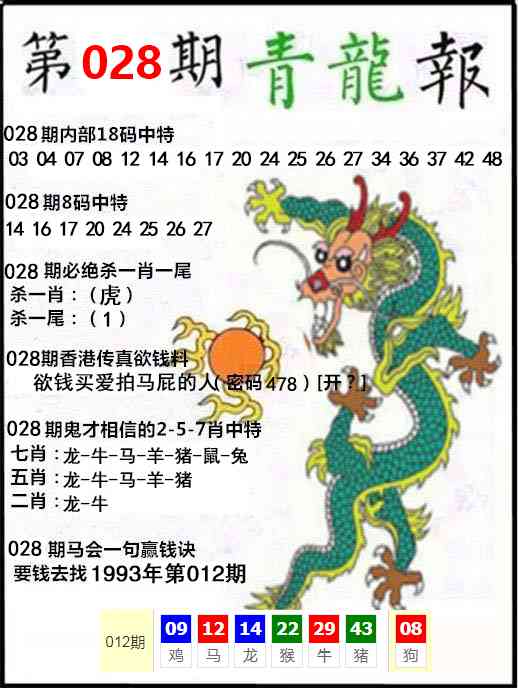 第028期青龍報
028期内部18码中特
03 04 07 08 12 14 16 17 20 24 25 26 27 34 36 37 42 48
028期8码中特
14 16 17 20 24 25 26 27
028 期必绝杀一肖一尾
杀一肖：（虎）
杀一尾：（1）
028期香港传真欲钱料
欲钱买爱拍马屁的人(密码478）[开？]
028期鬼才相信的2-5-7肖中特
七肖：龙-牛-马-羊-猪-鼠-兔
五肖：龙-牛-马-羊-猪
二肖：龙-牛
028 期马会一句赢钱诀
要钱去找1993年第012期
012期 09 12 14 22 29 43 08
鸡 马 龙 猴 牛 猪 狗